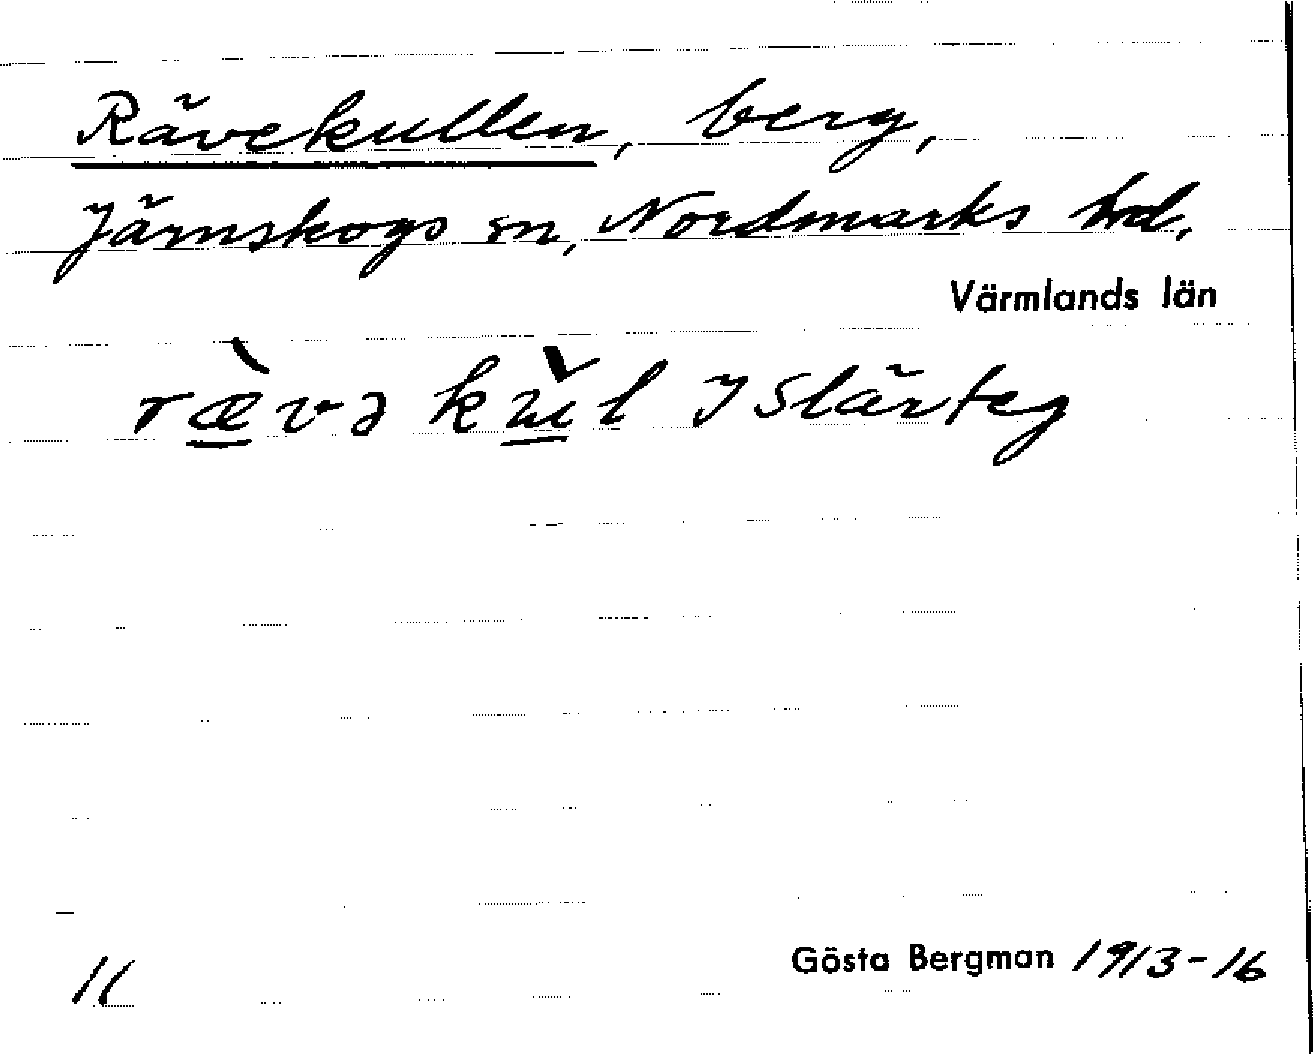 Rävekullen, berg,
Järnskogs sn, Nordmarks hrd.
Värmlands län
rævə kul I Slärteg
11
Gösta Bergman 1913-16